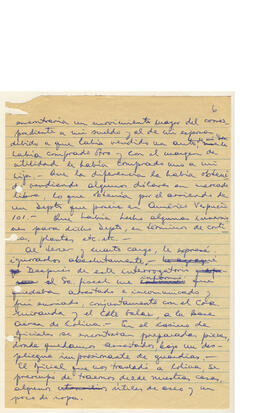 6
encontraría un movimiento mayor del corres
pondiente a mi sueldo y al de mi esposa
debido a que había vendido un auto, 
había comprado otro y con el margen de
utilidad le había comprado uno a mi
hijo.- Que la diferencia la había obteni
do vendiendo algunos dólares en mercado
libre. lo que obtenía por el arriendo de
un Depto que poseía en Américo Vespucio
101.- Que había hecho algunas inversio
nes para dicho Depto, en términos de corti
nas, plantes etc. etc.-
Al tercer y cuarto cargo, le expresé
ignorarlos absolutamente.-
Después de este interrogatorio
el Sr Fiscal me que
quedaba arrestado e incomunicado y
fuí enviado, conjuntamente con el Cdte
Miranda y el Cdte Salazar, a la Base
Aérea de Colina.- En el Casino de
Oficiales se encontraban preparadas piezas,
donde quedamos arrestados, bajo un des-
pliegue impresionante de guardias.-
El oficial que nos trasladó a Colina, se
preocupó de traernos desde nuestras casas,
algunos útiles de aseo y un
poco de ropa.